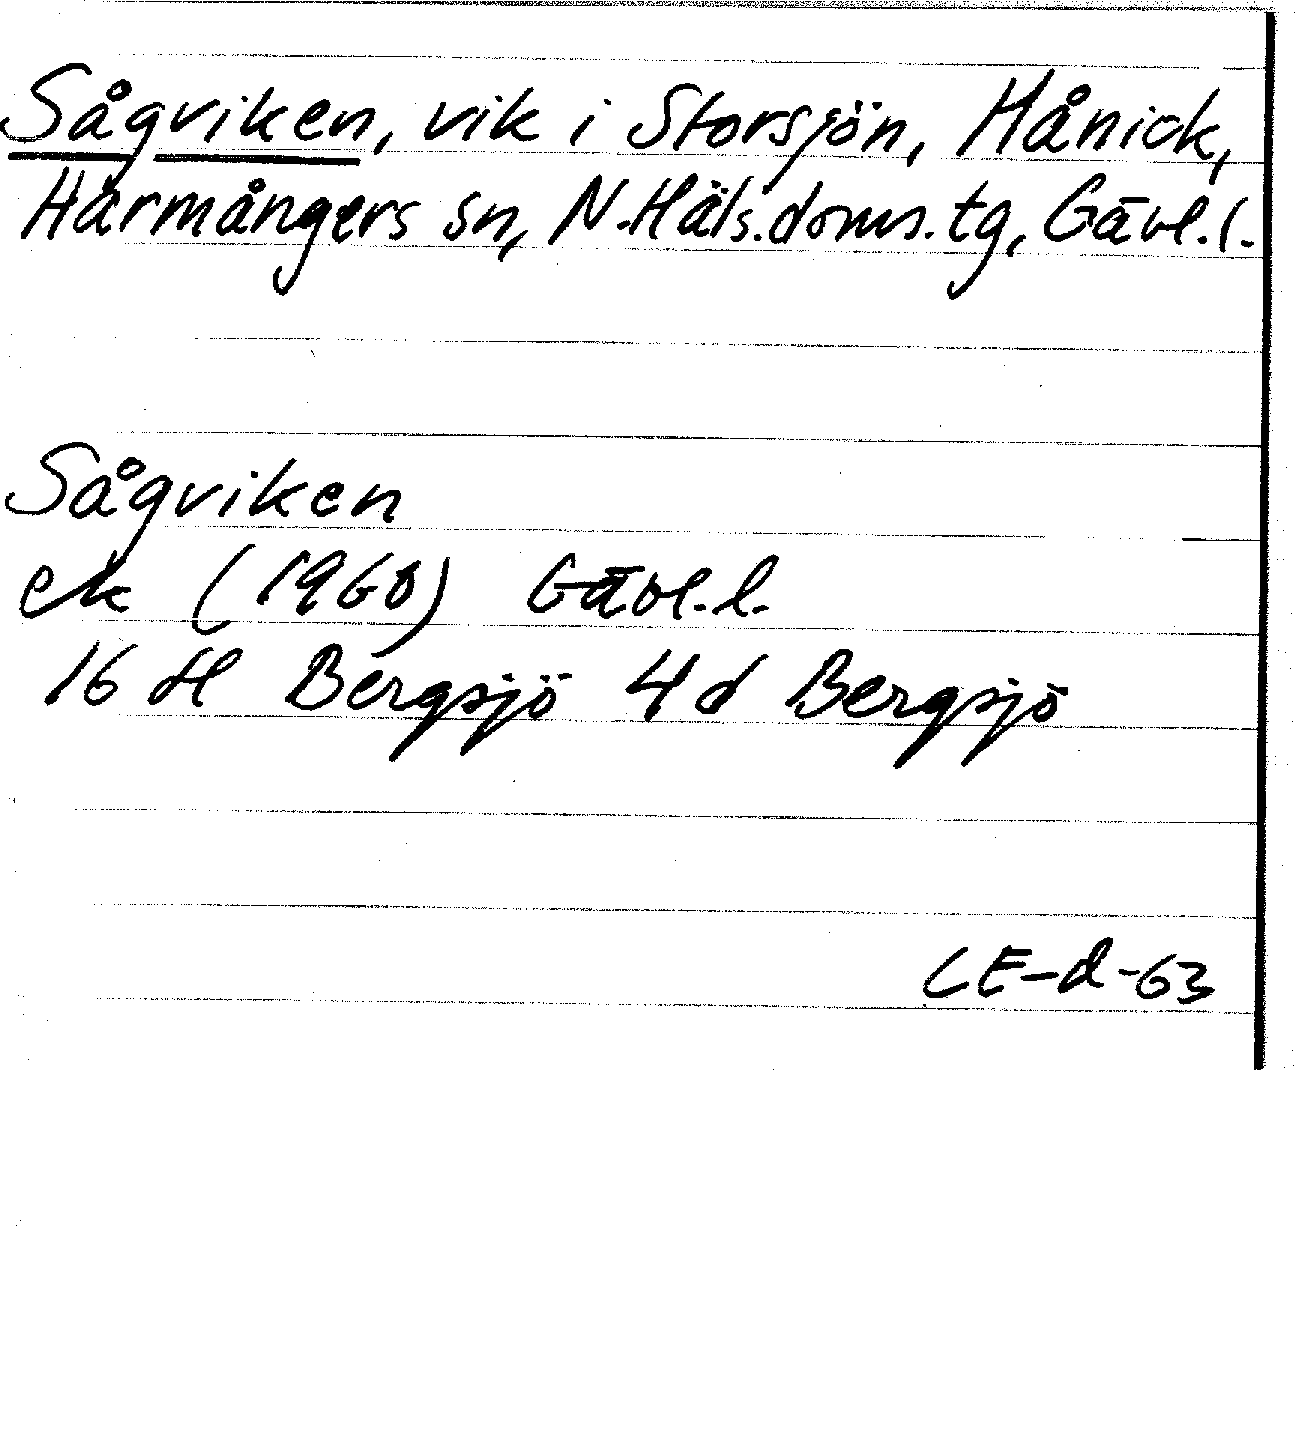 Sågviken, vik i Storsjön, Hånick,
Harmångers sn, N.Häls.doms.tg, Gävl.l.
Sågviken
ek (1960) Gävl.l.
16 H Bergsjö 4d Bergsjö
CE-d-63